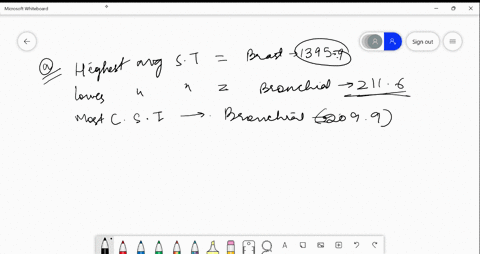 Microsoft Whiteboard
Sign out
(a) Highest avg S.T = Breast → 1395.9
lowes " " = Bronchial → 211.6
Most C.S.T → Bronchial (209.9)